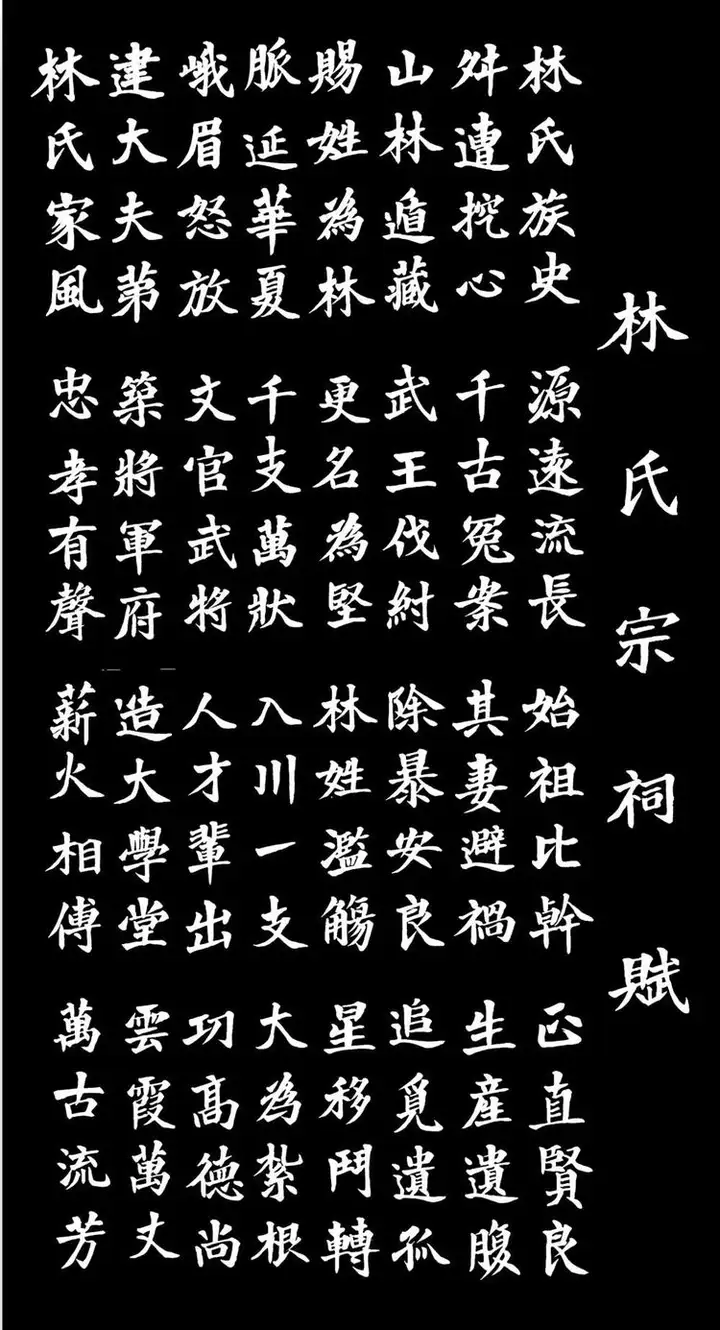 林氏宗祠賦
林氏族史 源遠流長 始祖比幹 正直賢良
舛遭挖心 千古冤案 其妻避禍 生産遺腹
山林遁藏 武王伐紂 除暴安良 追覓遺孤
賜姓為林 更名為堅 林姓濫觴 星移鬥轉
脈延華夏 千支萬狀 入川一支 大為紮根
峨眉怒放 文官武將 人才輩出 功高德尚
建大夫第 築將軍府 造大學堂 雲霞萬丈
林氏家風 忠孝有聲 薪火相傳 萬古流芳